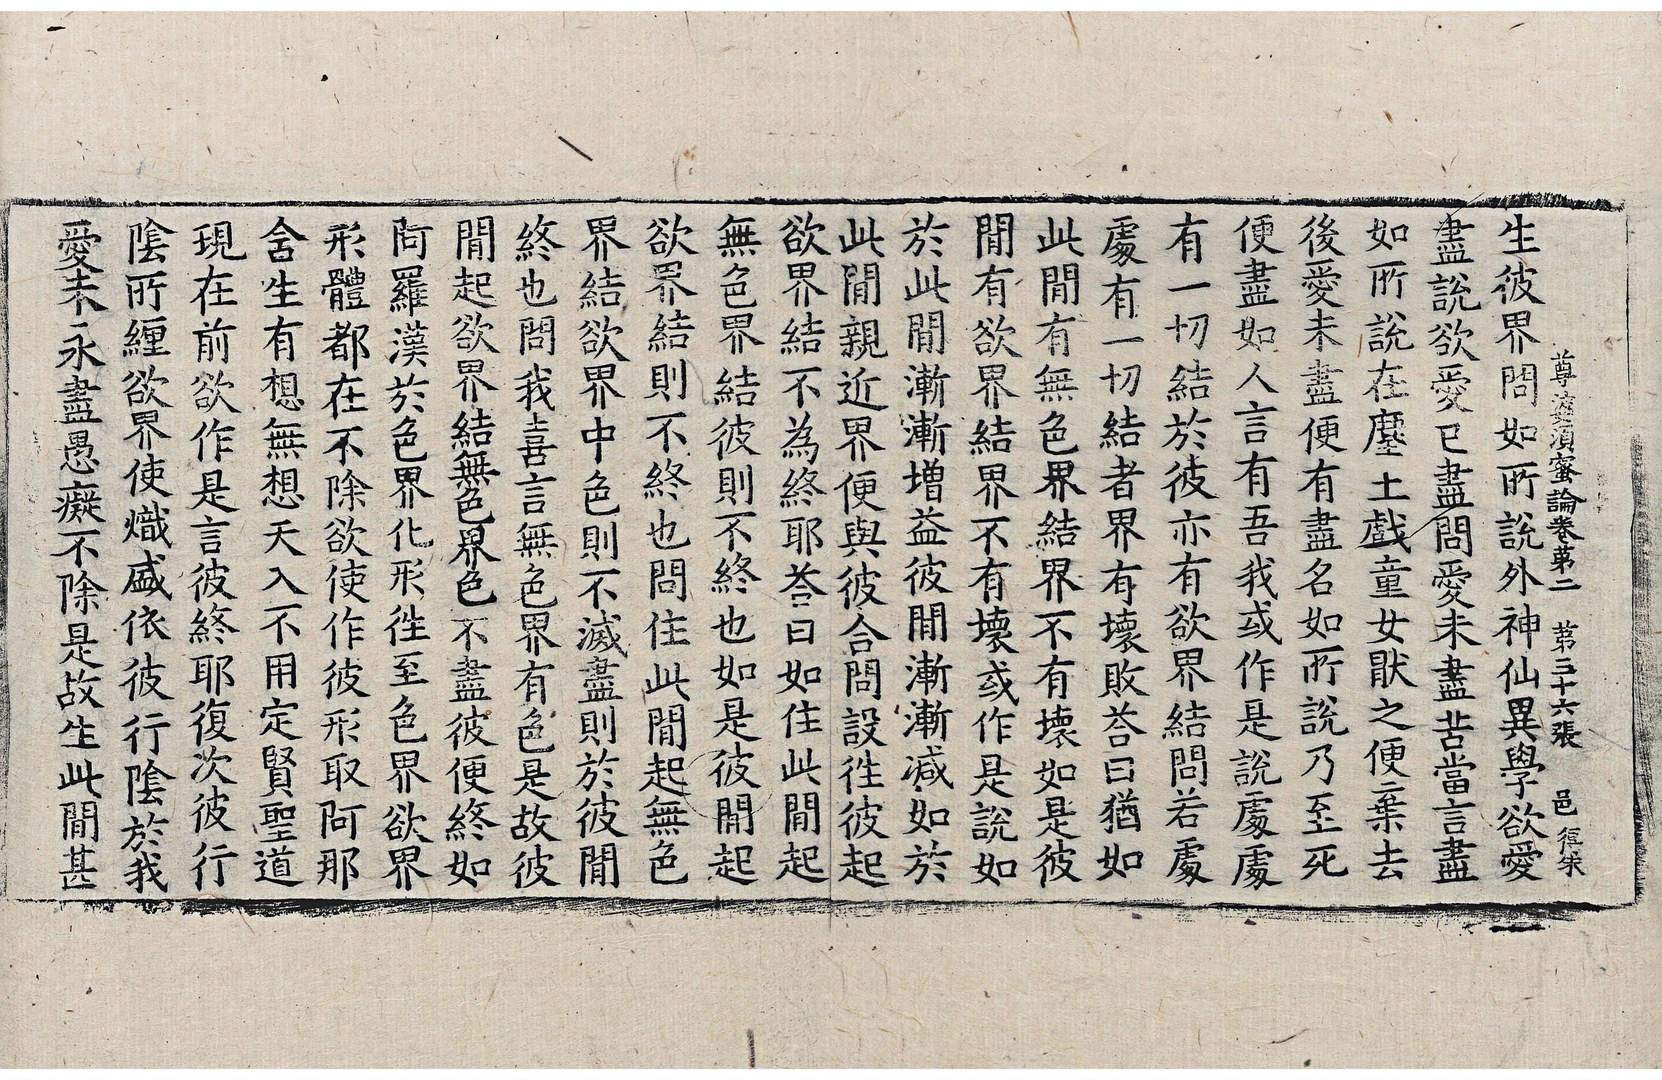 尊婆湏蜜論卷苐二　苐三十六張　邑
生彼界問如所說外神仙異學欲愛
盡說欲愛已盡問愛未盡盡苦當言盡
如所說在塵土戲童女猒之便棄去
後愛未盡便有盡名如所說乃至死
便盡如人言有吾我或作是說處處
有一切結於彼亦有欲界結問若處
處有一切結者界有壞敗荅曰猶如
此閒有無色界結界不有壞如是彼
閒有欲界結界不有壞或作是說如
於此閒漸漸増益彼閒漸漸减如於
此閒親近界便與彼合問設徃彼起
欲界結不為終耶荅曰如住此閒起
無色界結彼則不終也如是彼閒起
欲界結則不終也問住此閒起無色
界結欲界中色則不滅盡則於彼閒
終也問我喜言無色界有色是故彼
閒起欲界結無色界色不盡彼便終如
阿羅漢於色界化形徃至色界欲界
形體都在不除欲使作彼形取阿那
含生有想無想天入不用定賢聖道
現在前欲作是言彼終耶復次彼行
陰所纒欲界使熾盛依彼行陰於我
愛未永盡愚癡不除是故生此閒甚